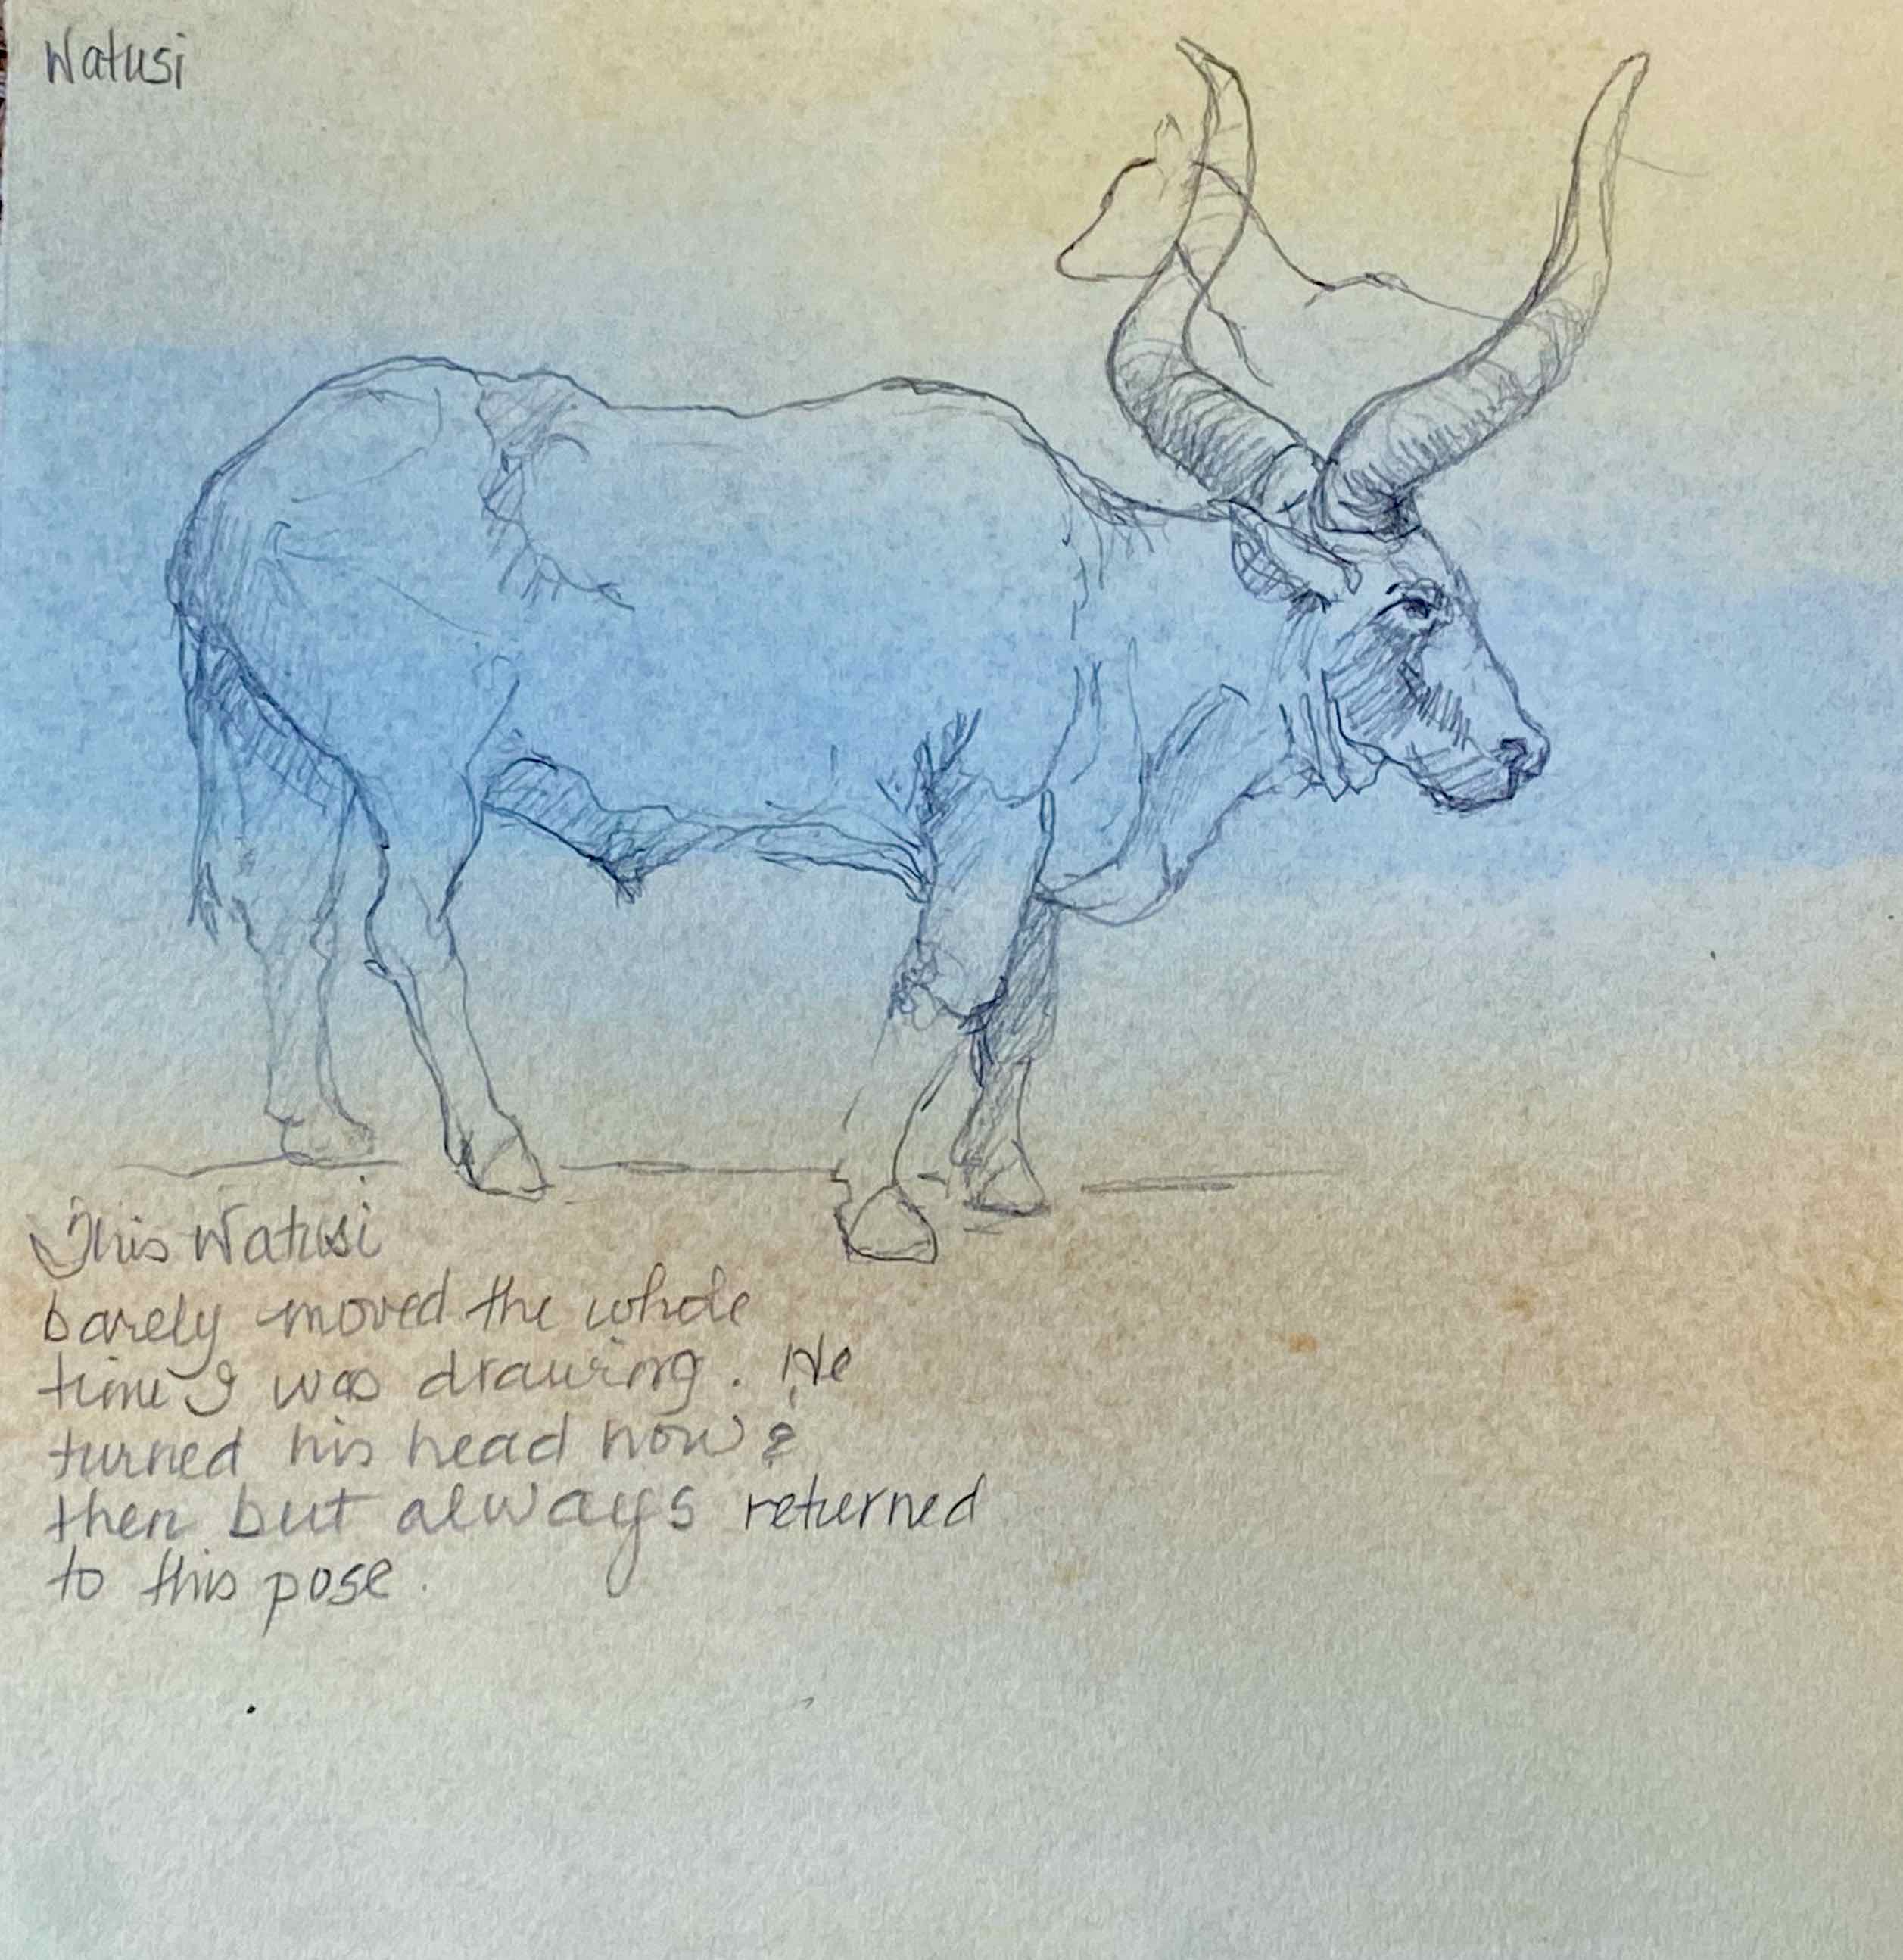 Watusi
This Watusi
barely moved the whole
time I was drawing. He
turned his head now &
then but always returned
to this pose.